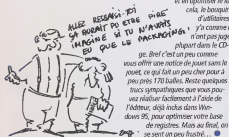 ALLEZ RESSAISI-TOI
ÇA AURAIT DU ÊTRE PIRE
IMAGINE SI TU N'AVAIS
EU QUE LE PACKAGING!
et optimiser le
cela, le bouquin
d'utilitaires
y'a comme
on ont pas jugé
plupart dans le CD-
ge. Bref c'est un peu comme
vous offrir une notice de jouet sans le
jouet, ce qui fait un peu cher pour à
peu près 170 balles. Reste quelques
trucs sympathiques que vous pou-
vez réaliser facilement à l'aide de
l'éditeur, déjà inclus dans Win-
dows 95, pour optimiser votre base
de registres. Mais au final, on
se sent un peu frustré...